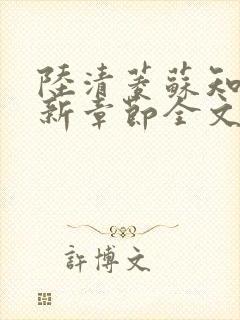 陸清蔆蘇知
新章節全文
許博文